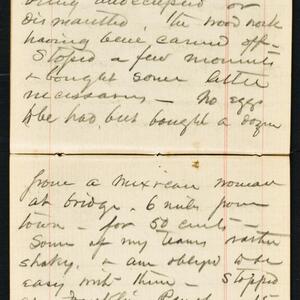 being unoccupied or
dismantled, the wood work
having been carried off —
Stopped a few moments
& bought some little
necessaries — No eggs
to be had, but bought a dozen
from a Mexican woman
at bridge, 6 miles from
town — for 50 cents —
Some of my teams rather
shaky, & am obliged to be
easy with them — Stopped
at